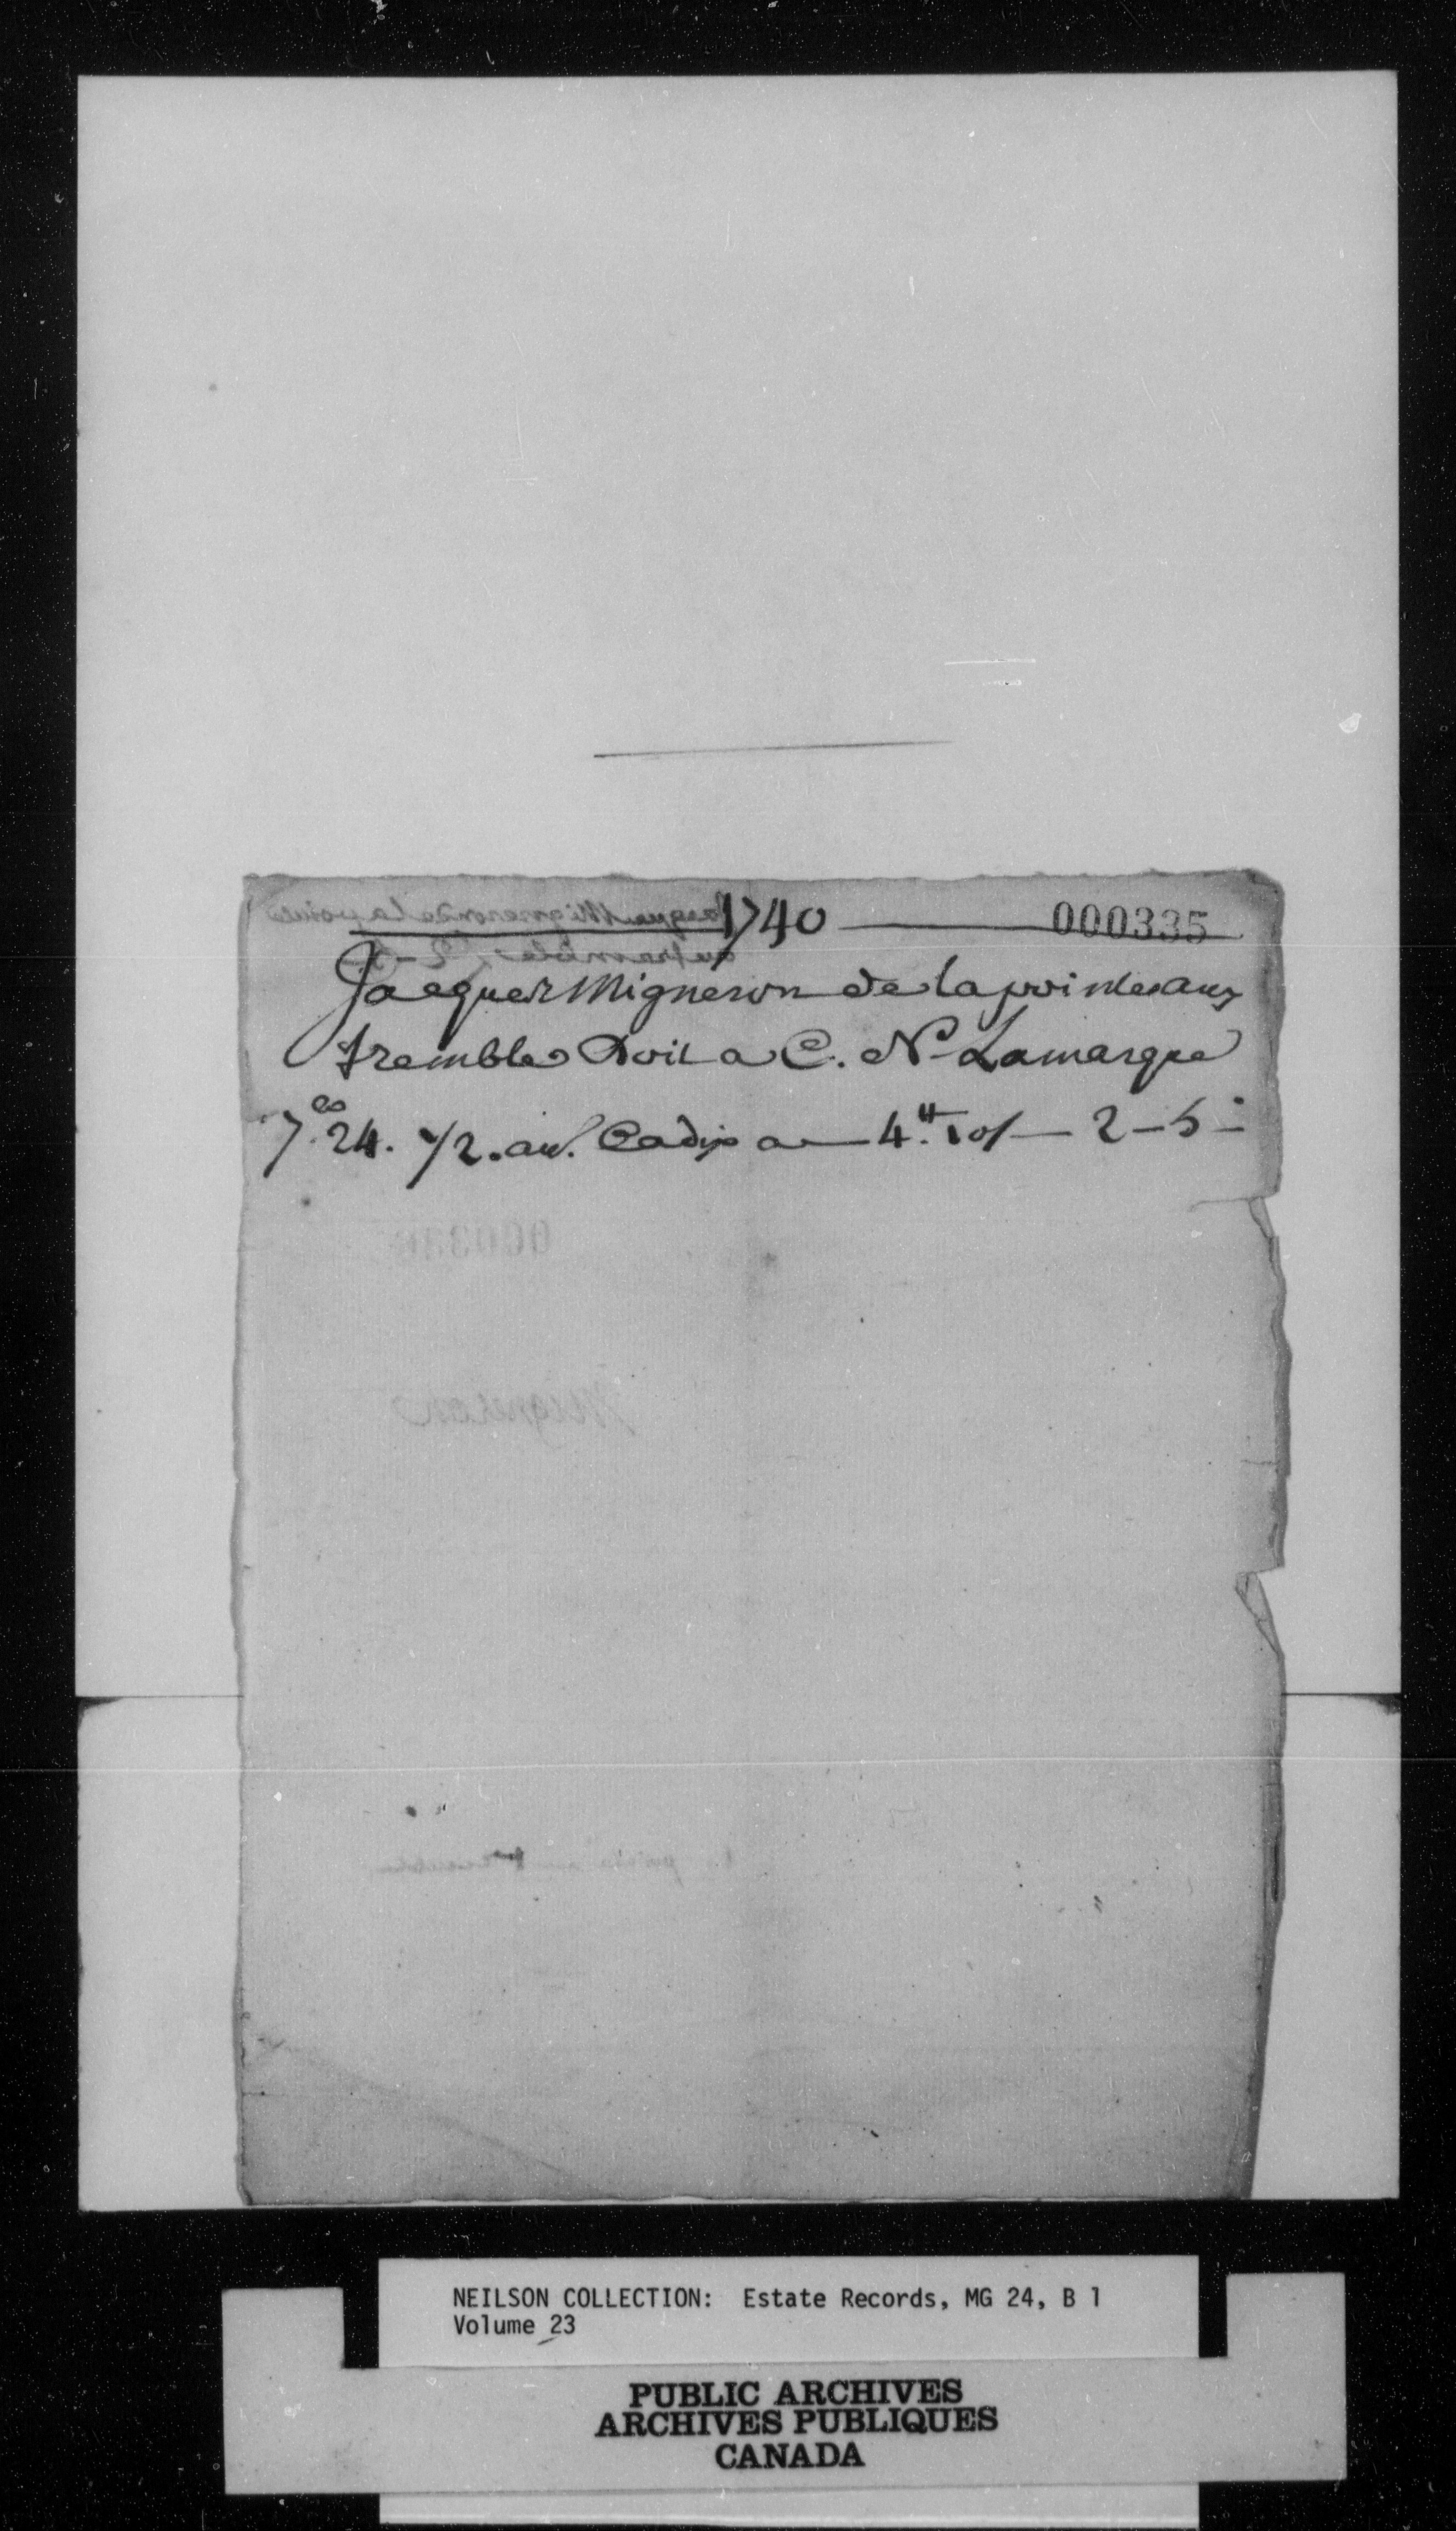 1740 000335
Jacques Migneron de la pointe aux
tremble Doit a C. N. Lamarque
7.es 24. 1/2. au. Cadix a — 4.tt 10s — 2 - 5 -
NEILSON COLLECTION: Estate Records, MG 24, B 1
Volume 23
PUBLIC ARCHIVES
ARCHIVES PUBLIQUES
CANADA